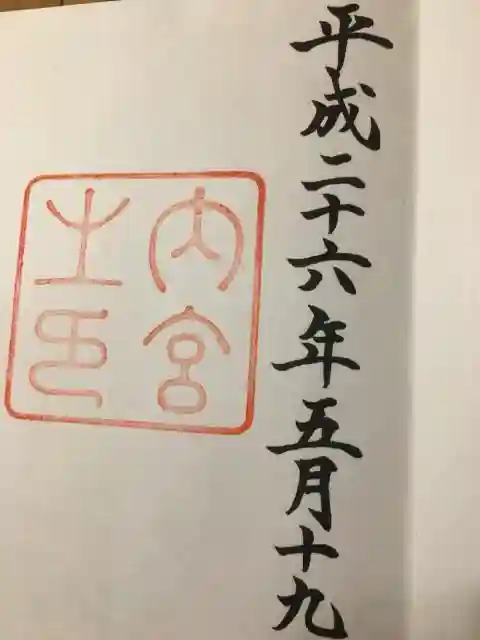 平成二十六年五月十九
内宮
之印